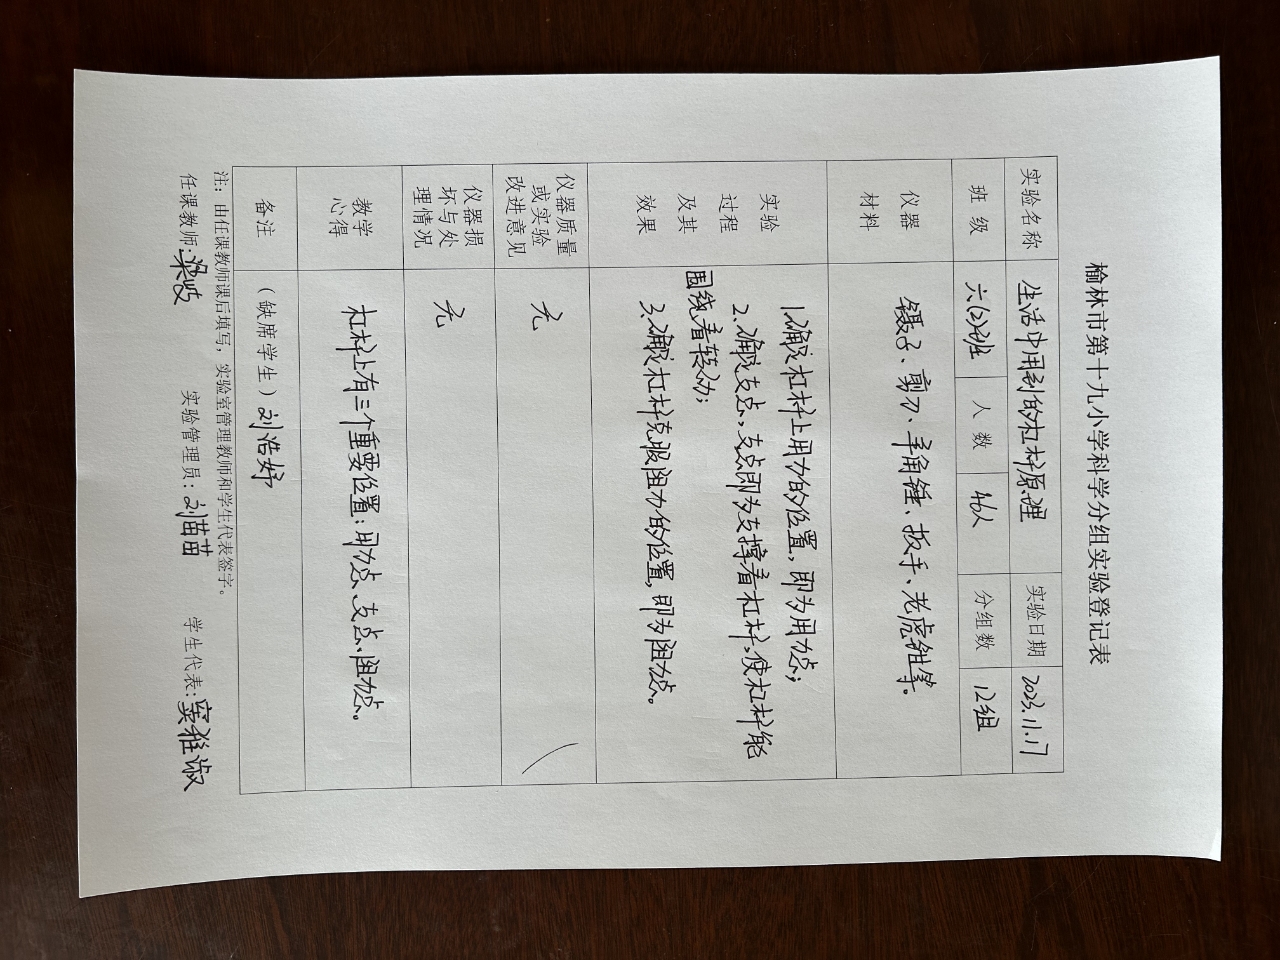 榆林市第十九小学科学分组实验登记表
实验名称 生活中用到的杠杆原理 实验日期 2023.11.17
班 级 六(2)班 人 数 46人 分组数 12组
仪器
材料
镊子、剪刀、羊角锤、扳手、老虎钳等。
实验
过程
及其
效果
1.确定杠杆上用力的位置,即为用力点;
2.确定支点,支点即为支撑着杠杆,使杠杆能
围绕着转动;
3.确定杠杆克服阻力的位置,即为阻力点。
仪器质量
或实验
改进意见
无
仪器损
坏与处
理情况
无
教学
心得
杠杆上有三个重要位置:用力点、支点、阻力点。
备注 (缺席学生)刘浩妤
注:由任课教师课后填写,实验室管理教师和学生代表签字。
任课教师:梁岐 实验管理员:刘苗苗 学生代表:窦雅淑